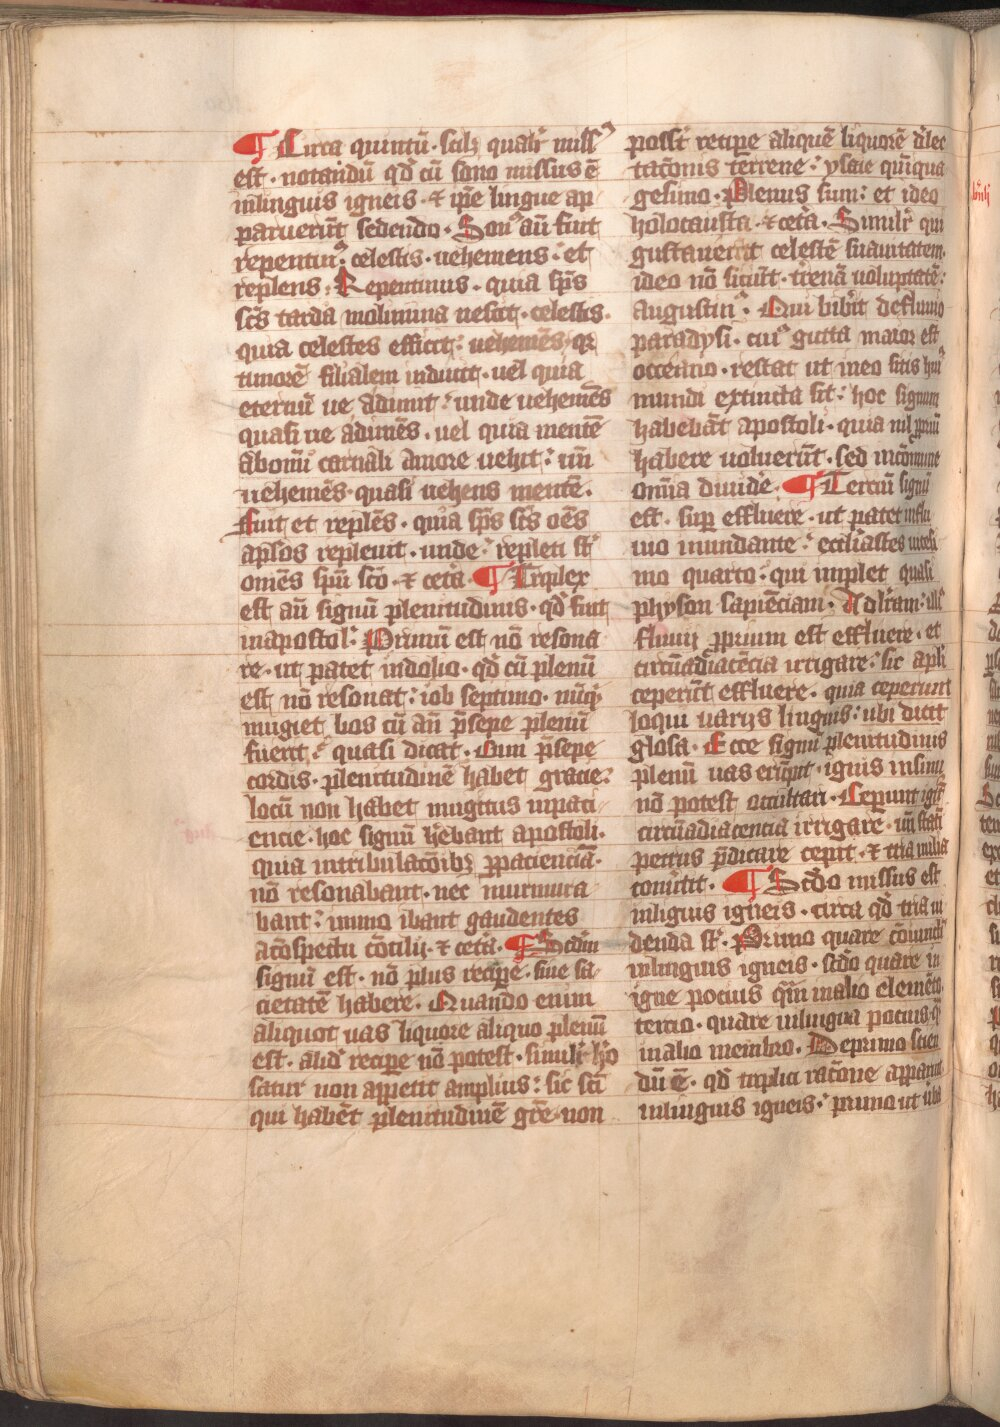 ¶ Circa quintū · scilꝫ qualr̄ miss⁹
est · notandū qd̄ cū sono missus ē
inlinguis igneis · ⁊ ip̄e lingue ap
paruerūt sedendo · Son⁹ aū fuit
repentin⁹ · celestis · uehemens · et
replens · Repentinus · quia sp̄s
sc̄s tarda molimina nescit · celestis ·
quia celestes efficit · uehemēs · qr
timorē filialem inducit · uel quia
eternū ue adimit · unde uehemēs
quasi ue adimēs · uel quia mentē
abom̄i carnali amore uehit · un̄
uehemēs · quasi uehens mentē ·
Fuit et replēs · quia sp̄s sc̄s oēs
apl̄os repleuit · unde · repleti st̄
omēs spū sc̄o · ⁊ cetā · ¶ Triplex
est aū signū plenitudinis · qd̄ fuit
inapostol · Primū est nō resona
re · ut patet indolio · qd̄ cū plenū
est nō resonat · iob septimo · nūq
mugiet bos cū aū p̄sepe plenū
fuerit · quasi dicat · Cum p̄sepe
cordis · plenitudinē habet gracie ·
locū non habet mugitus inpaci
encie · hoc signū hēbant apostoli ·
quia intribulacōibꝫ ꝑpacienciā ·
nō resonabant · nec murmura
bant · immo ibant gaudentes
acōspectu cōcilij · ⁊ cetā · ¶ Scdm
signū est · nō plus recipe · siue sa
cietatē habere · Quando enim
aliquot uas liquore aliquo plenū
est · alid recipe nō potest · similr̄ hō
satur non appetit amplius · sic sc̄i
qui habēt plenitudinē grē non
possūt recipere aliquē liquorē dilec
tacōnis terrene · ysaie quīqua
gesimo · Plenus sum · et ideo
holocausta · ⁊ cetā · Similr̄ qui
gustauerūt celestē suauitatem
ideo nō siciūt · trenā uoluptatē ·
Augustin⁹ · Qui bibit defluuio
paradysi · cui⁹ gutta maior est
occeano · restat ut ineo sitis hui⁹
mundi extincta sit · hoc signum
habebāt apostoli · quia nil ꝓpriū
habere uoluerūt · sed incōmune
omīa diuide · ¶ Terciū signū
est · suꝑ effluere · ut patet influ
uio inundante · eccliastes uicesi
mo quarto · qui implet quasi
physon sapiēciam · Ad lram · illi⁹
fluuij ꝓprium est effluere · et
circūadiacēcia irrigare · sic apl̄i
ceperūt effluere · quia ceperunt
loqui uarijs linguis · ubi dicit
glosa · Ecce signū plenitudinis
plenū uas erūpit · ignis insinu
nō potest occultari · Ceperunt igit̄
circūadiacencia irrigare · un̄ statī
petrus p̄dicare cepit · ⁊ tria milia
cōuertit · ¶ Scd̄o missus est
inliguis igneis · circa qd̄ tria ui
denda st̄ · Primo quare cōiuncti
inlinguis igneis · scdo quare in
igne pocius qm̄ inalio elemēto
tercio · quare inlingua pocius q̄
inalio membro · Deprimo scien
dū ē · qd̄ triplici racōne apparuit
inlinguis igneis · primo ut